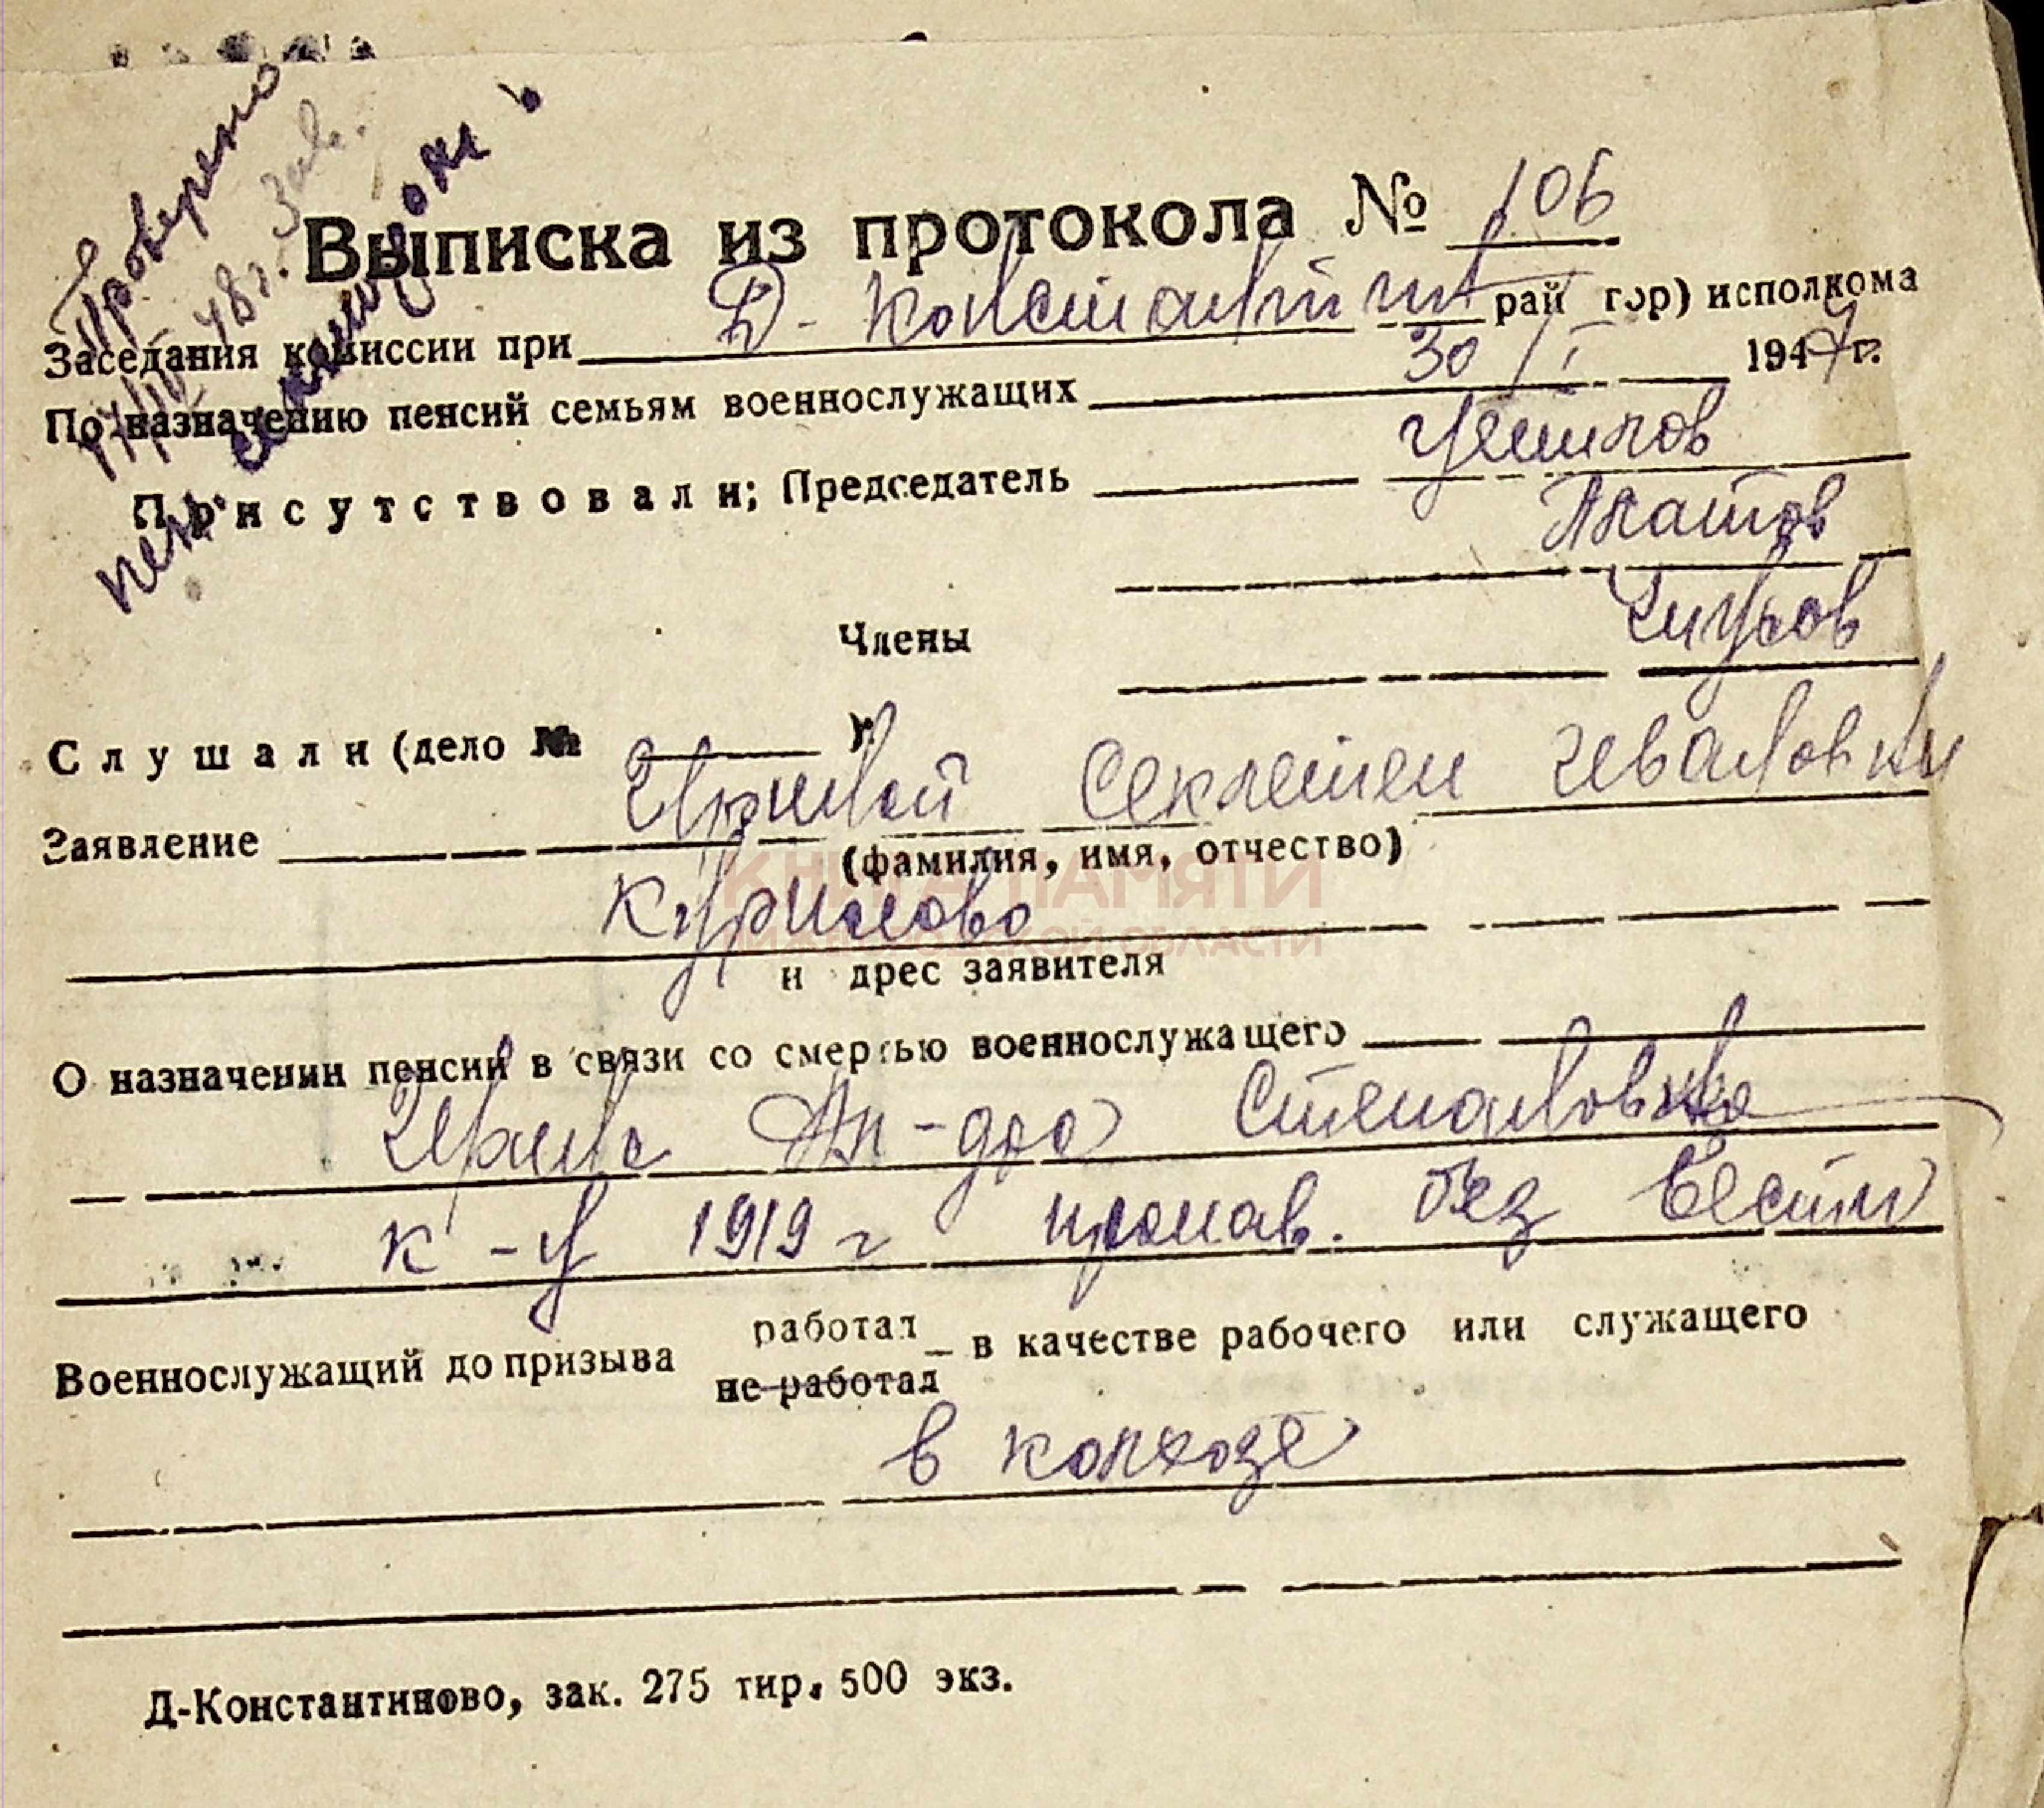 Проверено
48 г. Зав.
пен.
Выписка из протокола № 106
Заседания комиссии при Д-Константин рай гор) исполкома
По назначению пенсий семьям военнослужащих 30/I 1947 г.
Присутствовали; Председатель
Члены
Слушали (дело № )
Заявление Секлетеи Ивановны
(фамилия, имя, отчество)
Курилово
и дрес заявителя
О назначении пенсий в связи со смертью военнослужащего
Ал-дра Степановича
к-ц 1919 г пропав. без вести
Военнослужащий до призыва работал
не работал – в качестве рабочего или служащего
в колхозе
Д-Константиново, зак. 275 тир. 500 экз.
КНИГА ПАМЯТИ
НИЖЕГОРОДСКОЙ ОБЛАСТИ